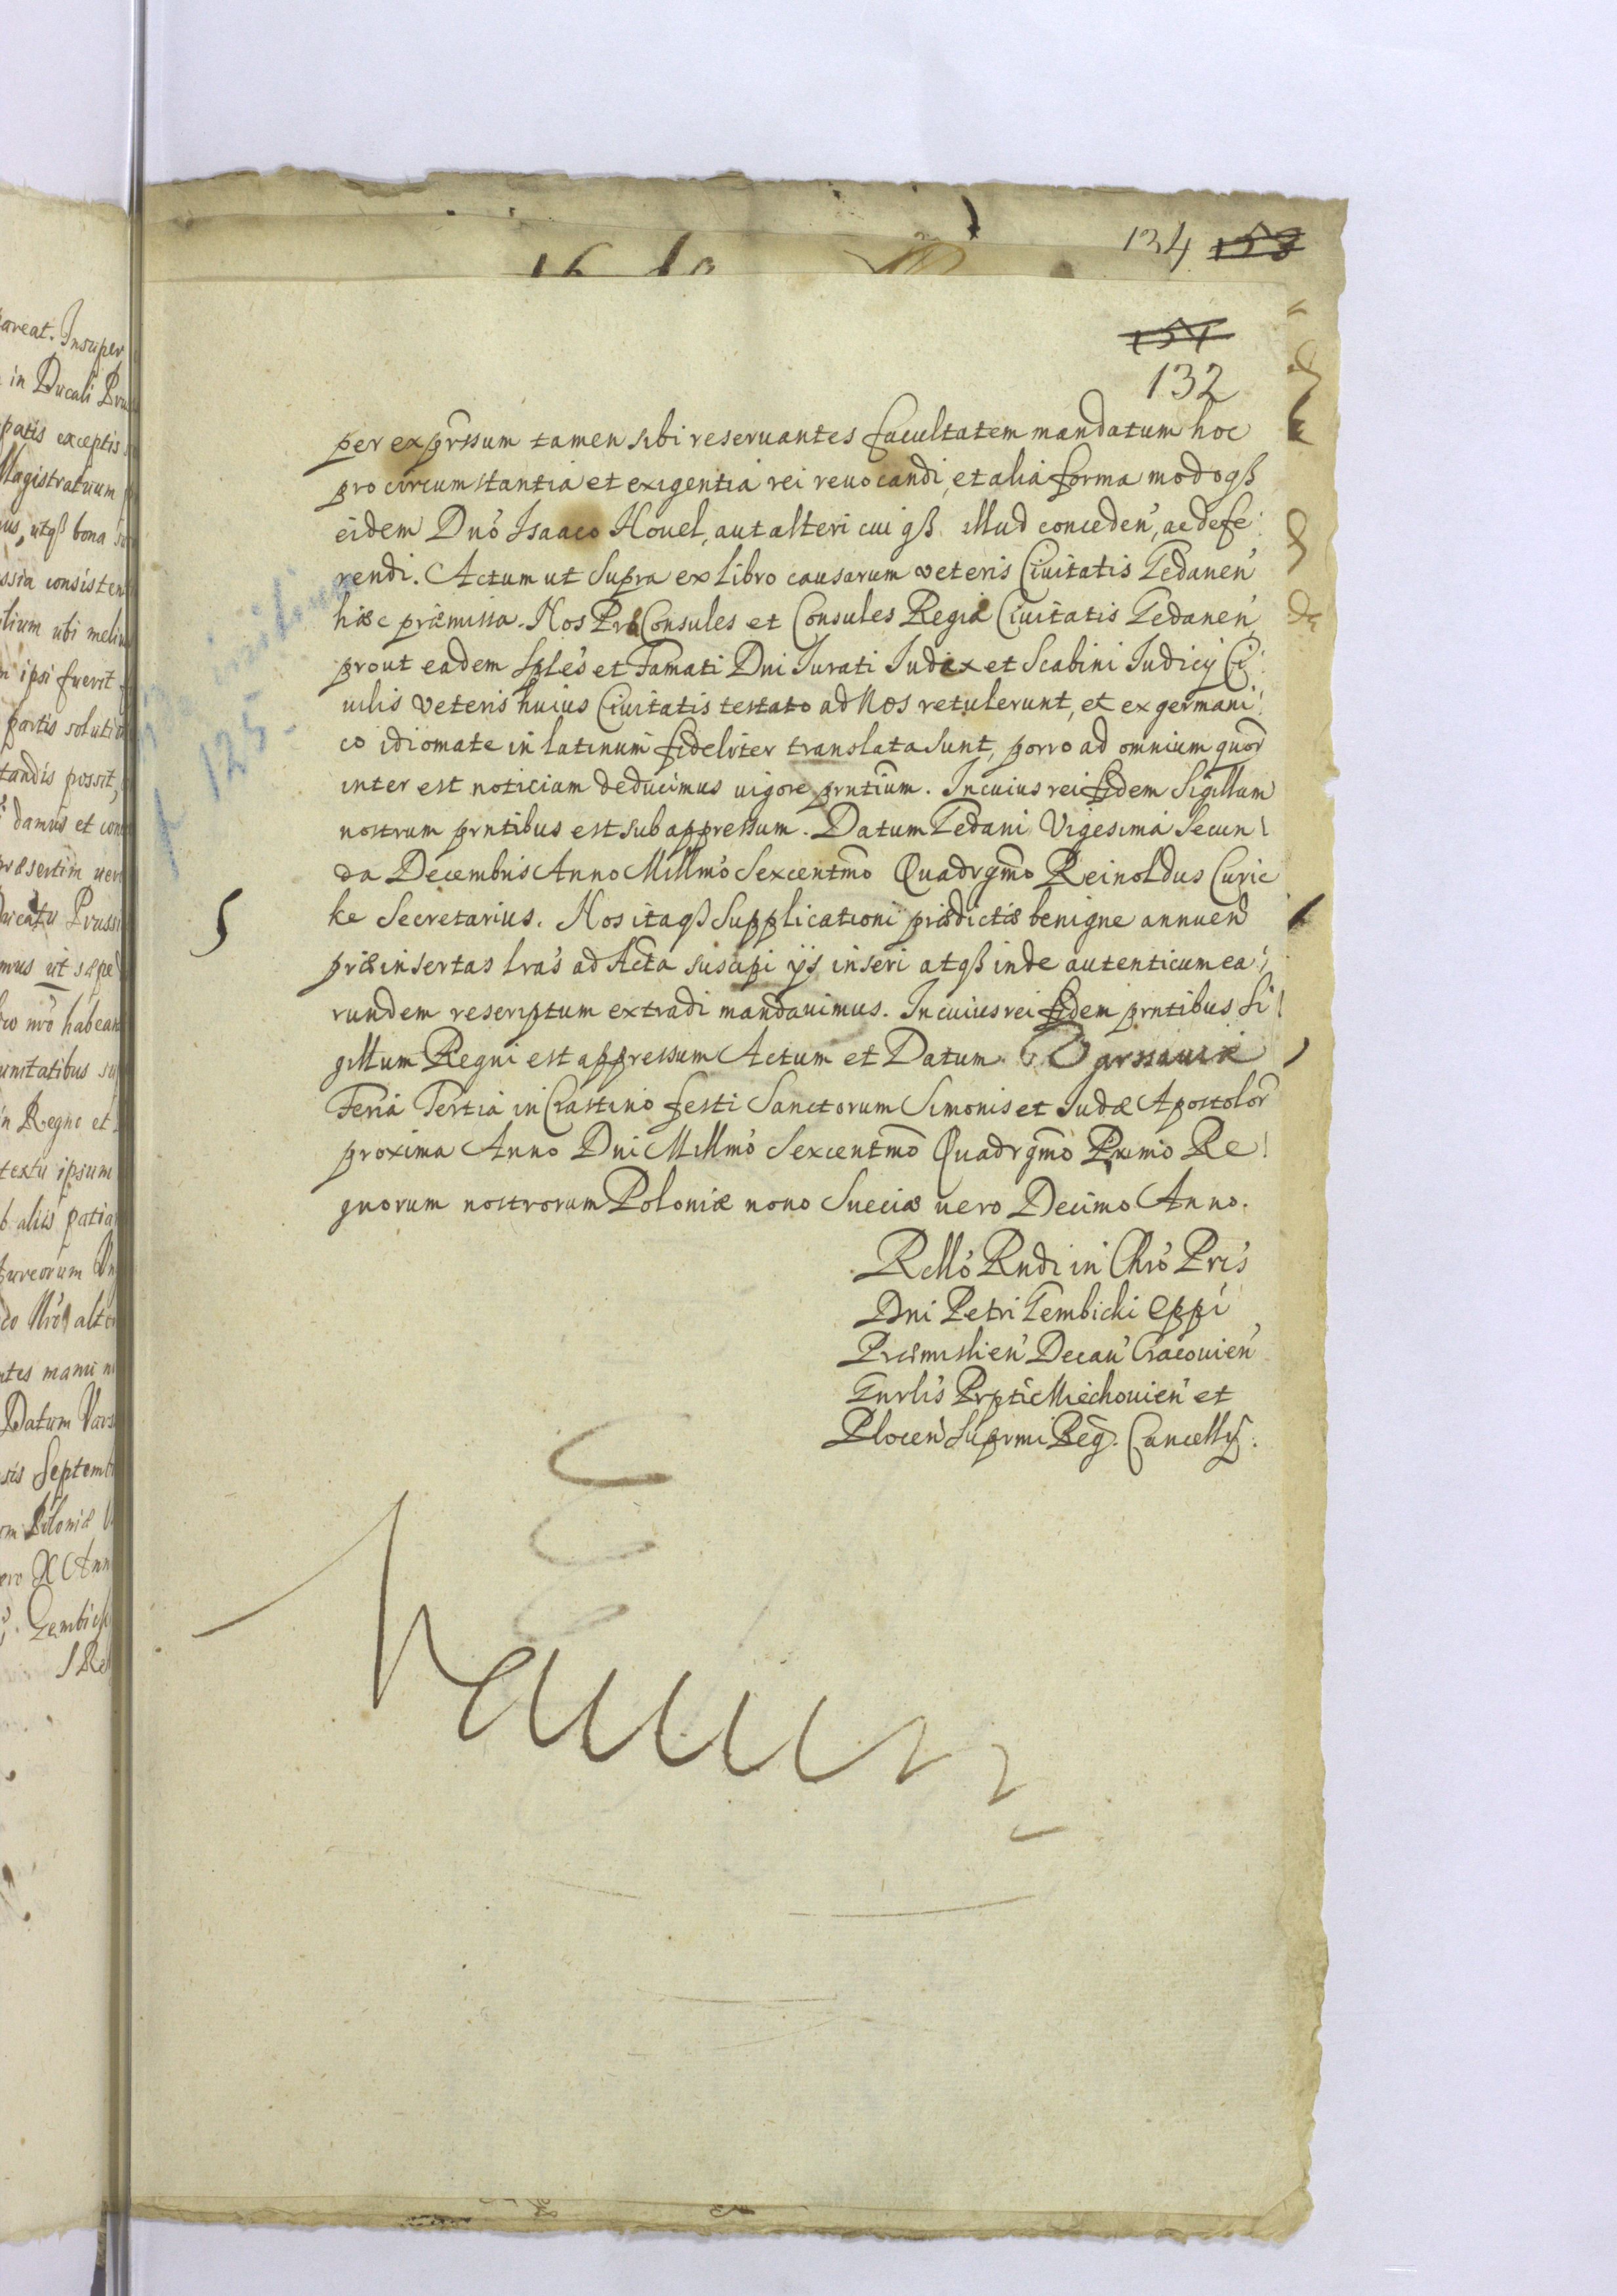 134 158
154
132
per exprssum tamen sibi reseruantes facultatem mandatum hoc
pro circumstantia et exigentia rei reuocandi, et alia forma modoqß
eidem Dno Isaaco Houel, aut alteri cuiqß illud conceden, ac defe
rendi. Actum ut Supra ex libro causarum veteris Ciuitatis Gedanen
hæc præmissa. Nos Pro Consules et Consules Regiæ Ciuitatis Gedanen,
prout eadem Sples et Famati Dni Iurati Iudex et Scabini Iudicij Ci
uilis Veteris huius Ciuitatis testato ad Nos retulerunt, et ex germani
co idiomate in latinum fideliter translata sunt, porro ad omnium quor
inter est noticiam deducimus uigore prntium. In cuius rei fidem Sigillum
nostrum prntibus est sub appressum. Datum Gedani Vigesima Secun
da Decembris Anno Millmo Sexcentmo Quadrgmo Reinoldus Curic
ke Secretarius. Nos itaqß Supplicationi prædictæ benigne annuen
præinsertas lras ad Acta suscipi ijs inseri atqß inde autenticum ea
rundem rescriptum extradi mandauimus. In cuius rei fidem prntibus Si
gillum Regni est appressum Actum et Datum Varssauiæ
Feria Tertia in Crastino festi Sanctorum Simonis et Iudæ Apostolor
proxima Anno Dni Millmo Sexcentmo Quadrgmo Primo Re
gnorum nostrorum Poloniæ nono Sueciæ uero Decimo Anno.
Rello Rndi in Chro Pris
Dni Petri Gembicki Eppi
Præmislien Decan Cracouien
Gnrlis Prpti Miechouien et
Plocen Suprmi Reg. Cancellrij.
125
areat. Insuper
in Ducali Pru
patis exceptis
Magistratuum
us, utqß bona
ssia consisten
lium ubi meliu
ipsi fuerit
partis soluti
tandis possit,
damus et con
præsertim uer
ducatu Prussi
mus ut sæpe
nro habean
unitatibus su
n Regno et
textu ipsum
b aliis patia
tureorum
do Nro alt
ntes manu n
Datum Vars
sis Septemb
m Poloniæ
ero X Ann
Gembick